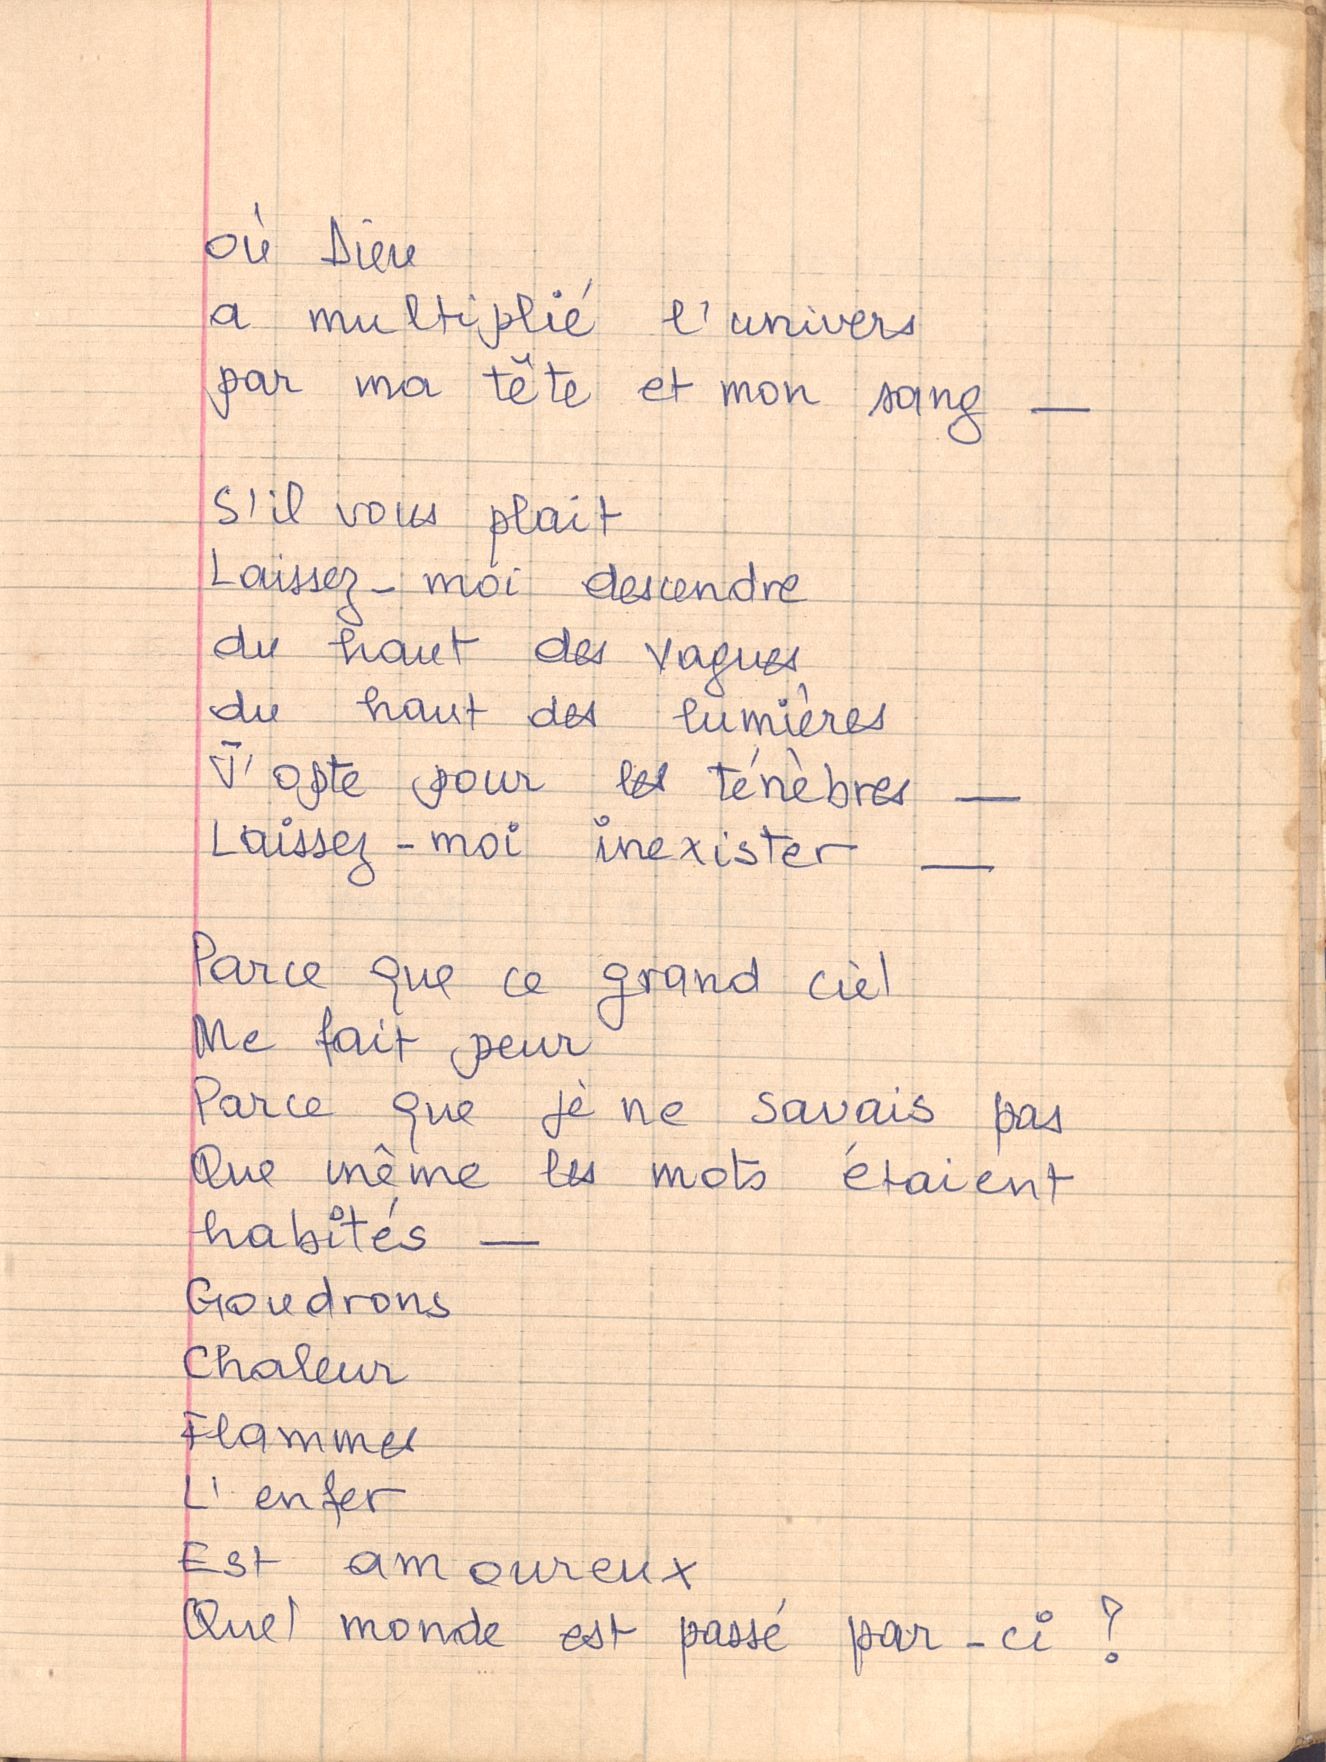 où Dieu
a multiplié l'univers
par ma tête et mon sang —
S'il vous plait
Laissez-moi descendre
du haut des vagues
du haut des lumières
J'opte pour les ténèbres —
Laissez-moi inexister —
Parce que ce grand ciel
Me fait peur
Parce que je ne savais pas
Que même les mots étaient
habités —
Goudrons
Chaleur
Flammes
L'enfer
Est amoureux
Quel monde est passé par-ci ?